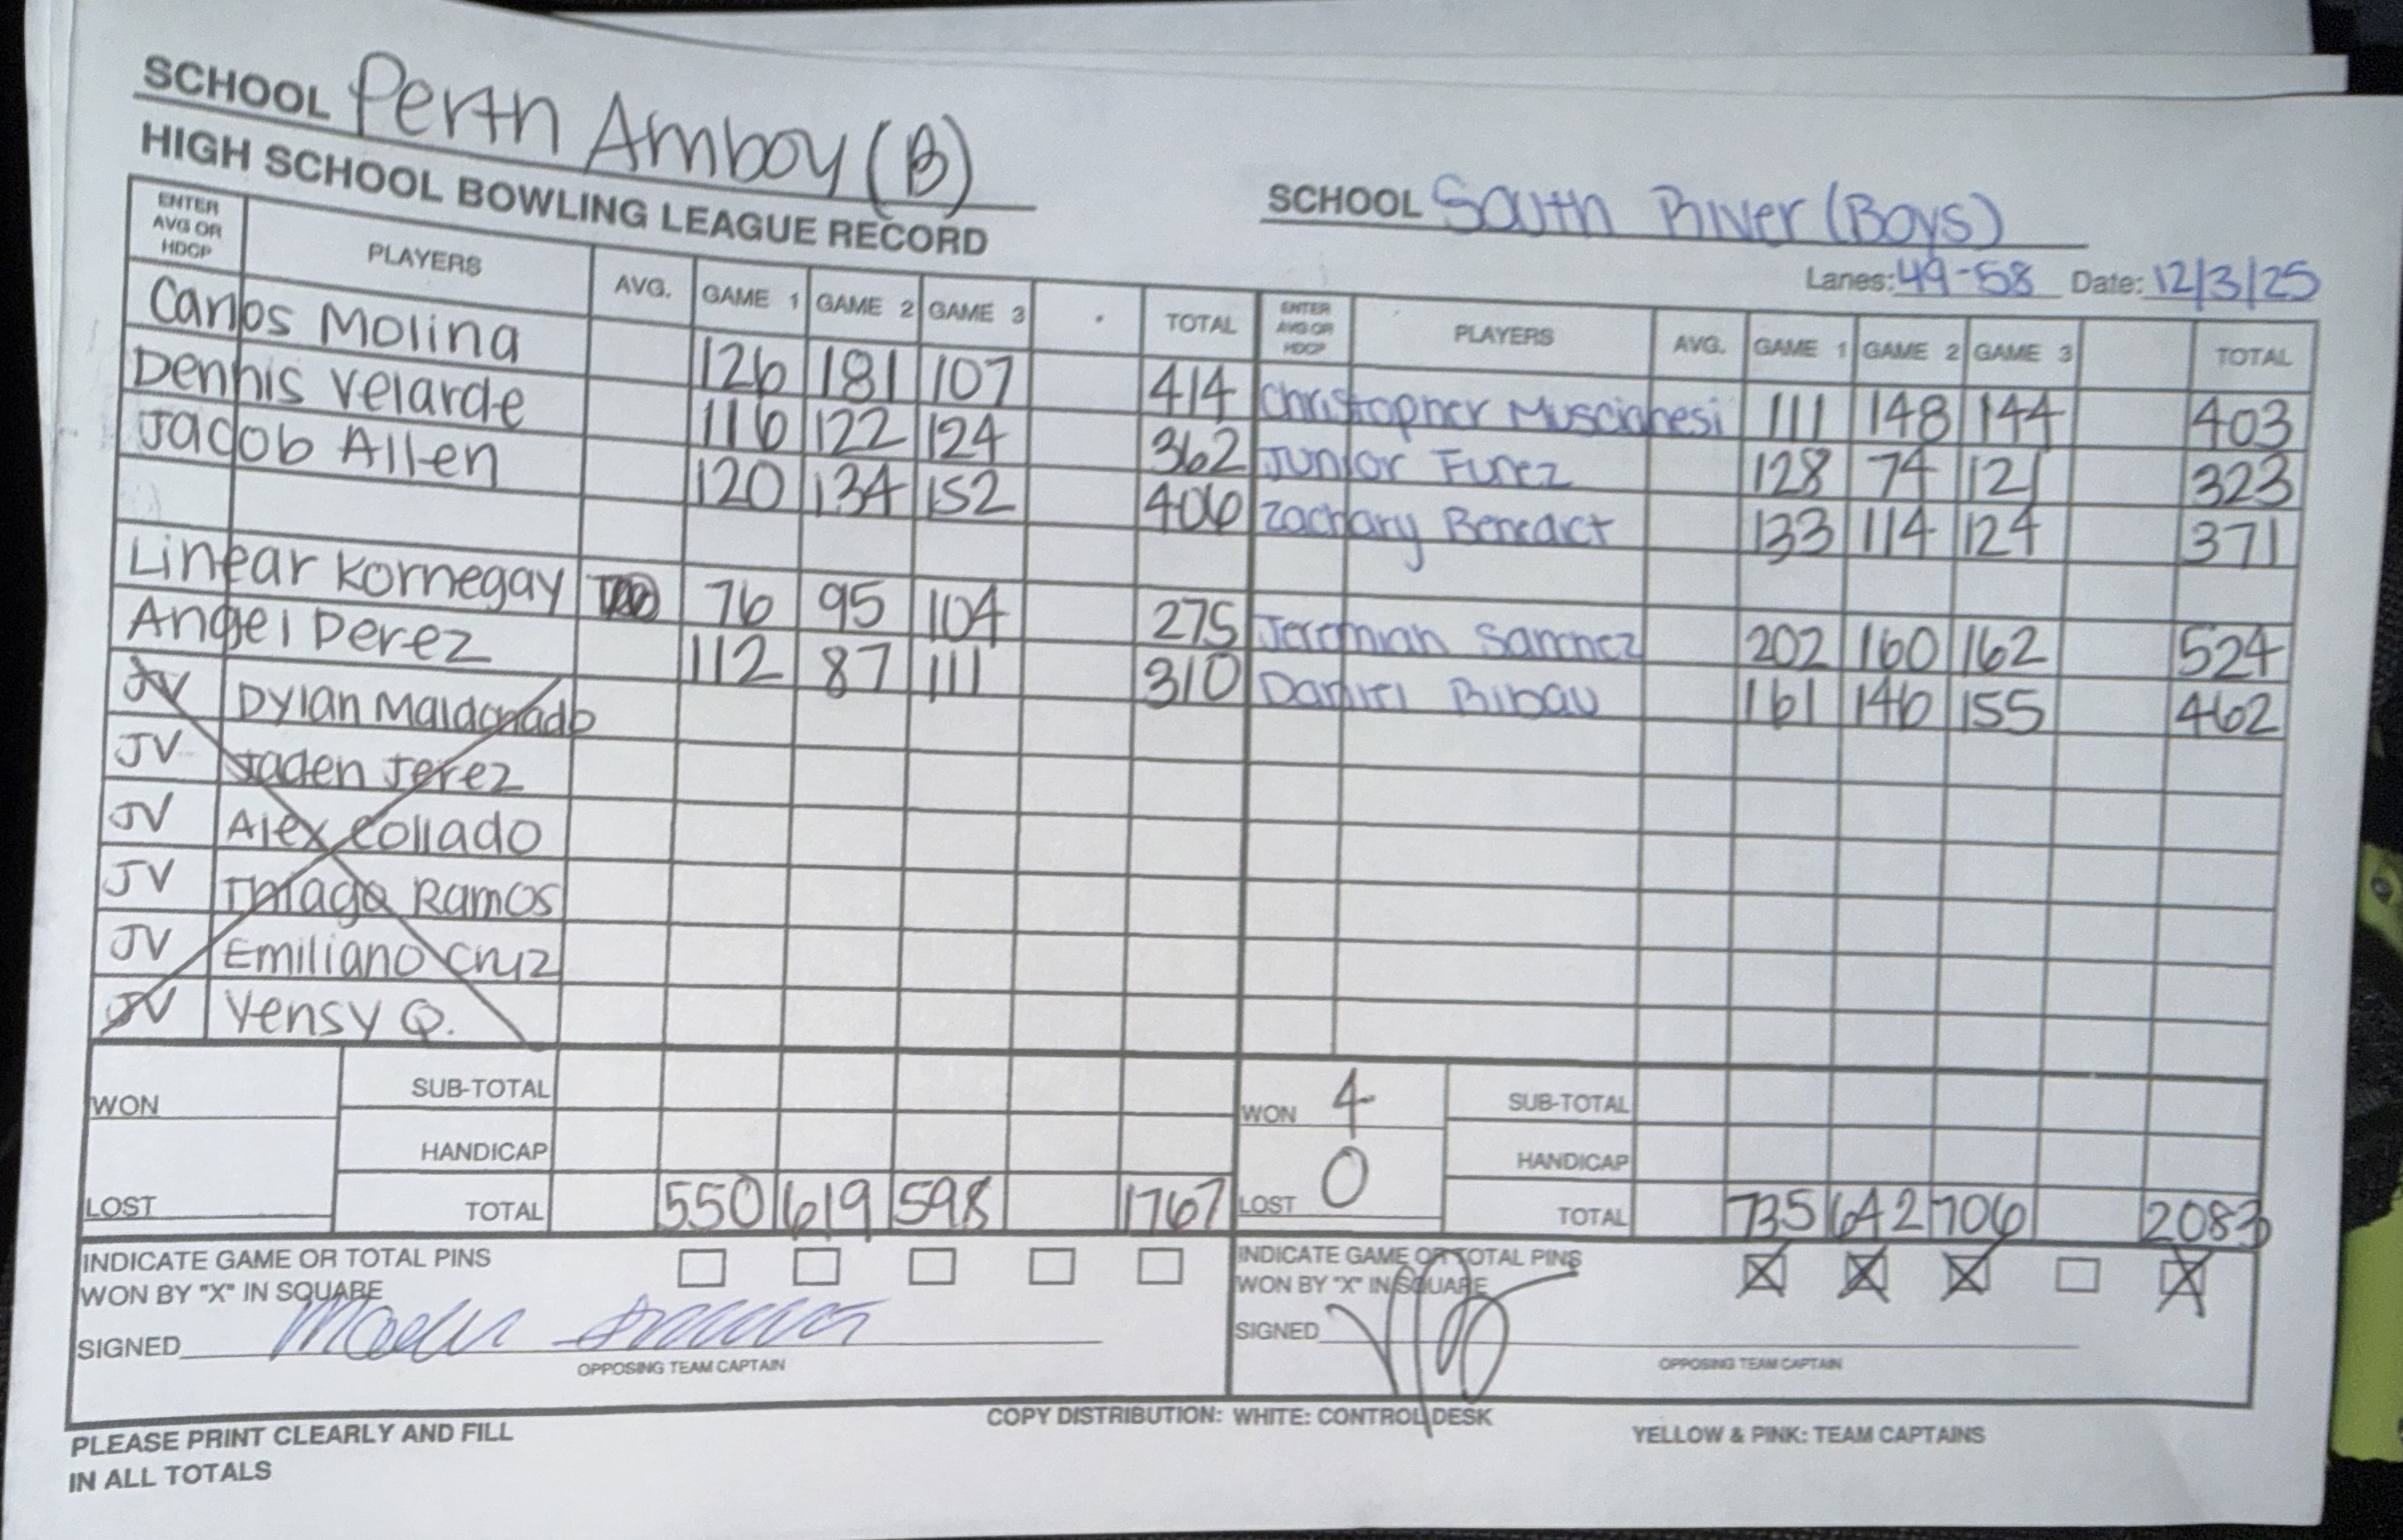 SCHOOL Perth Amboy (B)
HIGH SCHOOL BOWLING LEAGUE RECORD
SCHOOL South River (Boys)
Lanes: 49-58 Date: 12/3/25
ENTER AVG OR HDCP PLAYERS AVG. GAME 1 GAME 2 GAME 3 TOTAL
Carlos Molina 126 181 107 414
Dennis Velarde 116 122 124 362
Jacob Allen 120 134 152 406
Linear Kornegay 76 95 104 275
Angel Perez 112 87 111 310
JV Dylan Maldonado
JV Jaden Jerez
JV Alex Collado
JV Thiago Ramos
JV Emiliano Cruz
JV Yensy Q.
SUB-TOTAL
WON
HANDICAP
LOST
TOTAL 550 619 598 1767
INDICATE GAME OR TOTAL PINS
WON BY "X" IN SQUARE
SIGNED
OPPOSING TEAM CAPTAIN
ENTER AVG OR HDCP PLAYERS AVG. GAME 1 GAME 2 GAME 3 TOTAL
Christopher 111 148 144 403
Junior Funez 128 74 121 323
Zachary Benedict 133 114 124 371
Jeremiah Sanchez 202 160 162 524
Daniel Bibau 161 146 155 462
SUB-TOTAL
WON 4
HANDICAP
LOST 0
TOTAL 735 642 706 2083
INDICATE GAME OR TOTAL PINS
WON BY "X" IN SQUARE
SIGNED
OPPOSING TEAM CAPTAIN
PLEASE PRINT CLEARLY AND FILL
IN ALL TOTALS
COPY DISTRIBUTION: WHITE: CONTROL DESK
YELLOW & PINK: TEAM CAPTAINS